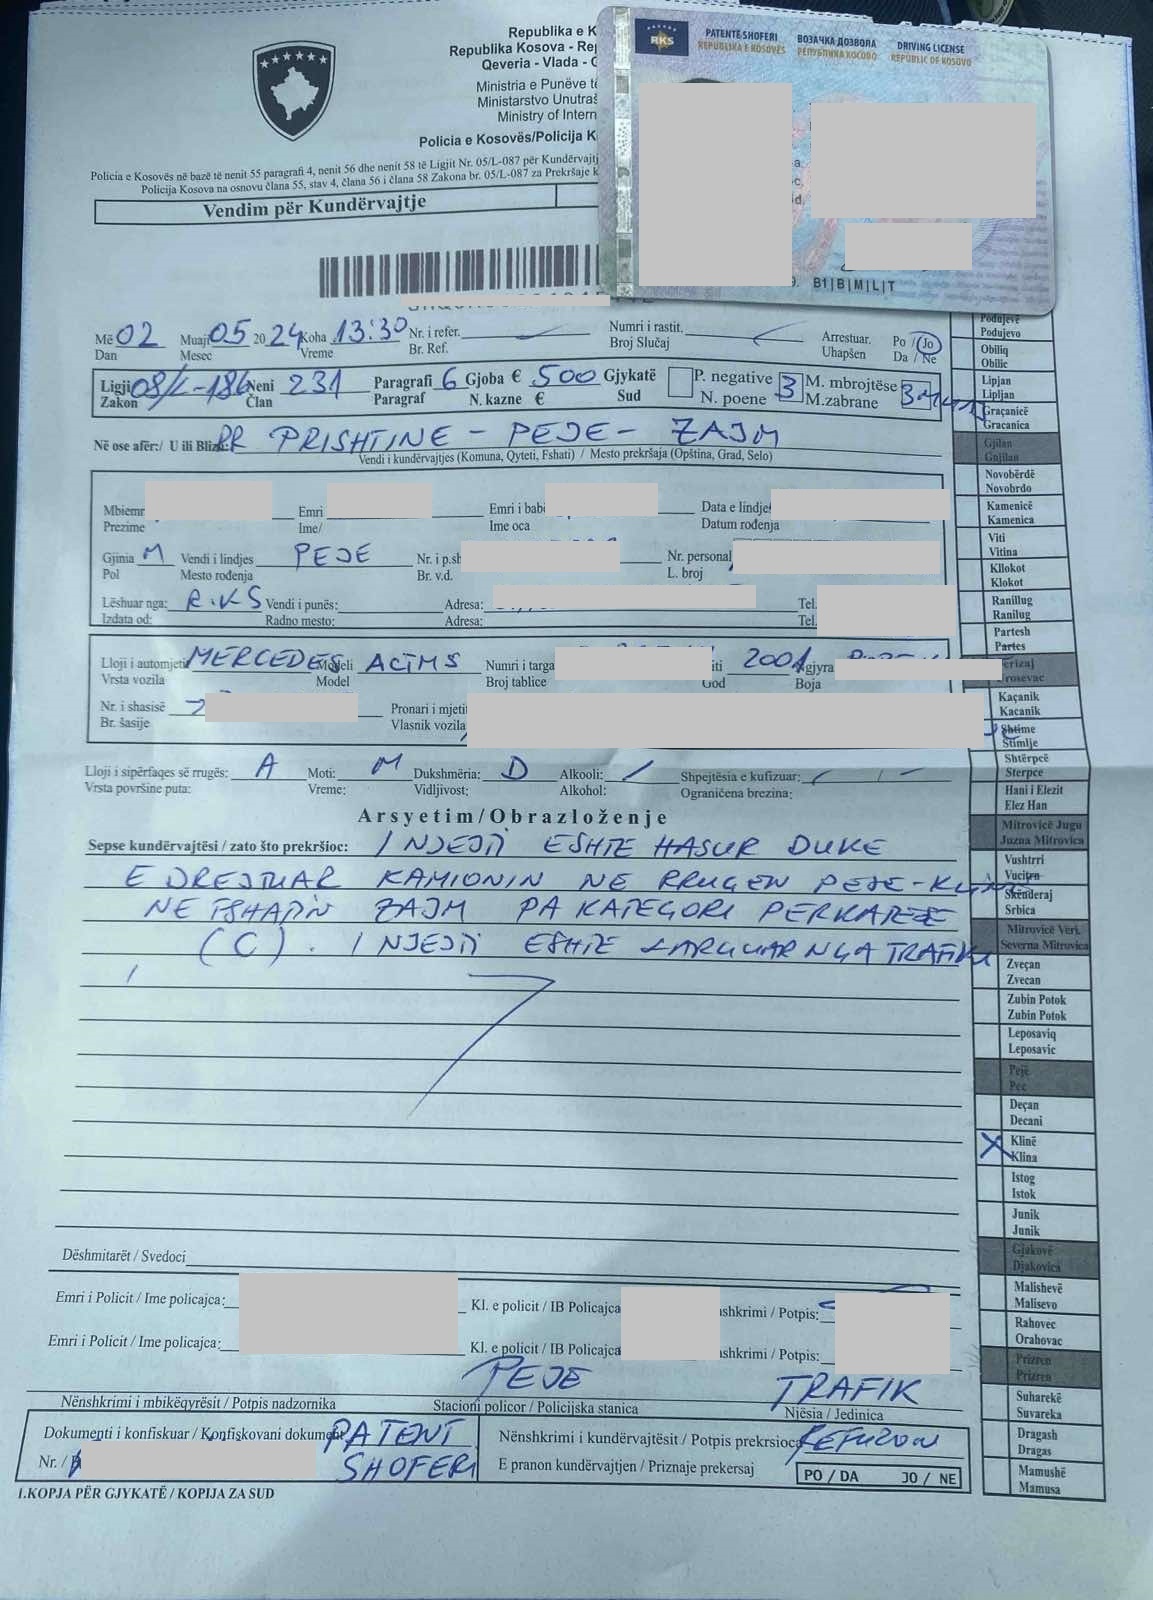 Republika e K
Republika Kosova - Rep
Qeveria - Vlada - G
Ministria e Punëve të
Ministarstvo Unutraš
Ministry of Intern
Policia e Kosovës/Policija K
Policia e Kosovës në bazë të nenit 55 paragrafi 4, nenit 56 dhe nenit 58 të Ligjit Nr. 05/L-087 për Kundërvajtj
Policija Kosova na osnovu člana 55, stav 4, člana 56 i člana 58 Zakona br. 05/L-087 za Prekršaje k
Vendim për Kundërvajtje
RKS
PATENTË SHOFERI ВОЗАЧКА ДОЗВОЛА DRIVING LICENSE
REPUBLIKA E KOSOVËS РЕПУБЛИКА КОСОВО REPUBLIC OF KOSOVO
B1|B|M|L|T
Më 02 Muaji 05 2024 Koha 13:30 Nr. i refer. Numri i rastit. Arrestuar. Po / Jo
Dan Mesec Vreme Br. Ref. Broj Slučaj Uhapšen Da / Ne
Ligji 08/L-186 Neni 231 Paragrafi 6 Gjoba € 500 Gjykatë P. negative 3 M. mbrojtëse 3 muaj
Zakon Član Paragraf N. kazne € Sud N. poene M.zabrane
Në ose afër:/ U ili Blizu: RR PRISHTINE - PEJE - ZAJM
Vendi i kundërvajtjes (Komuna, Qyteti, Fshati) / Mesto prekršaja (Opština, Grad, Selo)
Mbiemr Emri Emri i babi Data e lindje
Prezime Ime/ Ime oca Datum rođenja
Gjinia M Vendi i lindjes PEJE Nr. i p.sh Nr. personal
Pol Mesto rođenja Br. v.d. L. broj
Lëshuar nga: R.KS Vendi i punës: Adresa: Tel.
Izdata od: Radno mesto: Adresa: Tel.
Lloji i automjetit MERCEDES Modeli ACTMS Numri i targa iti 2001 Ngjyra
Vrsta vozila Model Broj tablice God Boja
Nr. i shasisë Pronari i mjeti
Br. šasije Vlasnik vozila
Lloji i sipërfaqes së rrugës: A Moti: M Dukshmëria: D Alkooli: / Shpejtësia e kufizuar:
Vrsta površine puta: Vreme: Vidljivost: Alkohol: Ograničena brezina:
Arsyetim/Obrazloženje
Sepse kundërvajtësi / zato što prekršioc: I NJEJTI ESHTE HASUR DUKE
E DREJTUAR KAMIONIN NE RRUGEN PEJE-KLINE
NE FSHATIN ZAJM PA KATEGORI PERKATESE
(C). I NJEJTI ESHTE LARGUAR NGA TRAFIKU
Dëshmitarët / Svedoci
Emri i Policit / Ime policajca: Kl. e policit / IB Policajca nshkrimi / Potpis:
Emri i Policit / Ime policajca: Kl. e policit / IB Policajca nshkrimi / Potpis:
PEJE TRAFIK
Nënshkrimi i mbikëqyrësit / Potpis nadzornika Stacioni policor / Policijska stanica Njësia / Jedinica
Dokumenti i konfiskuar / Konfiskovani dokument PATENT
Nr. / SHOFERI
Nënshkrimi i kundërvajtësit / Potpis prekrsioca REFUZON
E pranon kundërvajtjen / Priznaje prekersaj PO / DA JO / NE
1.KOPJA PËR GJYKATË / KOPIJA ZA SUD
Podujevë
Podujevo
Obiliq
Obilic
Lipjan
Lipljan
Graçanicë
Gracanica
Gjilan
Gnjilan
Novobërdë
Novobrdo
Kamenicë
Kamenica
Viti
Vitina
Kllokot
Klokot
Ranillug
Ranilug
Partesh
Partes
erizaj
rosevac
Kaçanik
Kacanik
Shtime
Stimlje
Shtërpcë
Sterpce
Hani i Elezit
Elez Han
Mitrovicë Jugu
Juzna Mitrovica
Vushtrri
Vucitrn
Skënderaj
Srbica
Mitrovicë Veri.
Severna Mitrovica
Zveçan
Zvecan
Zubin Potok
Zubin Potok
Leposaviq
Leposavic
Pejë
Pec
Deçan
Decani
X Klinë
Klina
Istog
Istok
Junik
Junik
Gjakovë
Djakovica
Malishevë
Malisevo
Rahovec
Orahovac
Prizren
Prizren
Suharekë
Suvareka
Dragash
Dragas
Mamushë
Mamusa